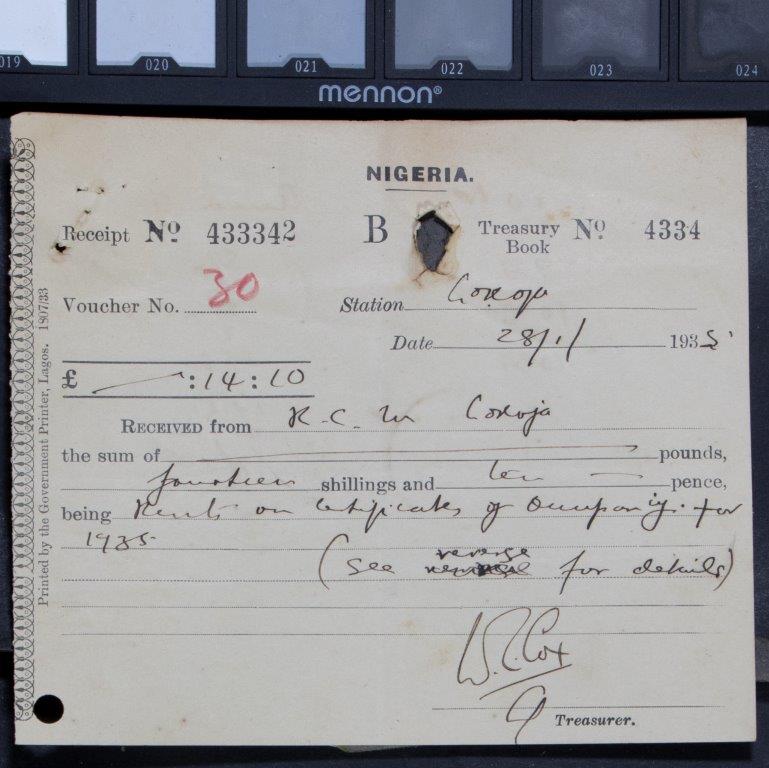 019 020 021 022 023 024
mennon®
NIGERIA.
Receipt No 433342 B Treasury Book No 4334
Voucher No. 30 Station Lokoja
Date 28/1/ 1935
£ — : 14 : 10
RECEIVED from R.C.M Lokoja
the sum of — pounds,
fourteen shillings and ten — pence,
being Rents on Certificates of Occupancy. for
1935
(See reverse for details)
Treasurer.
Printed by the Government Printer, Lagos. 1807/33